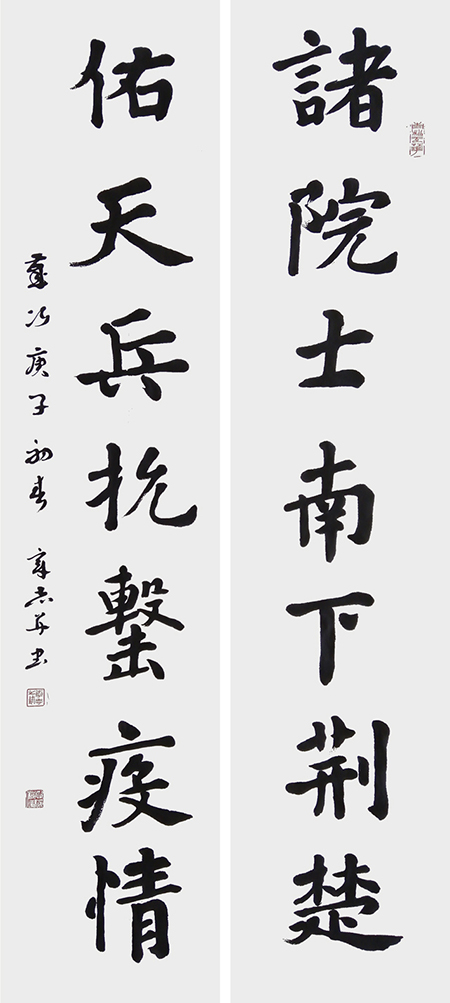 諸院士南下荆楚
佑天兵抗擊疫情
歲次庚子初春